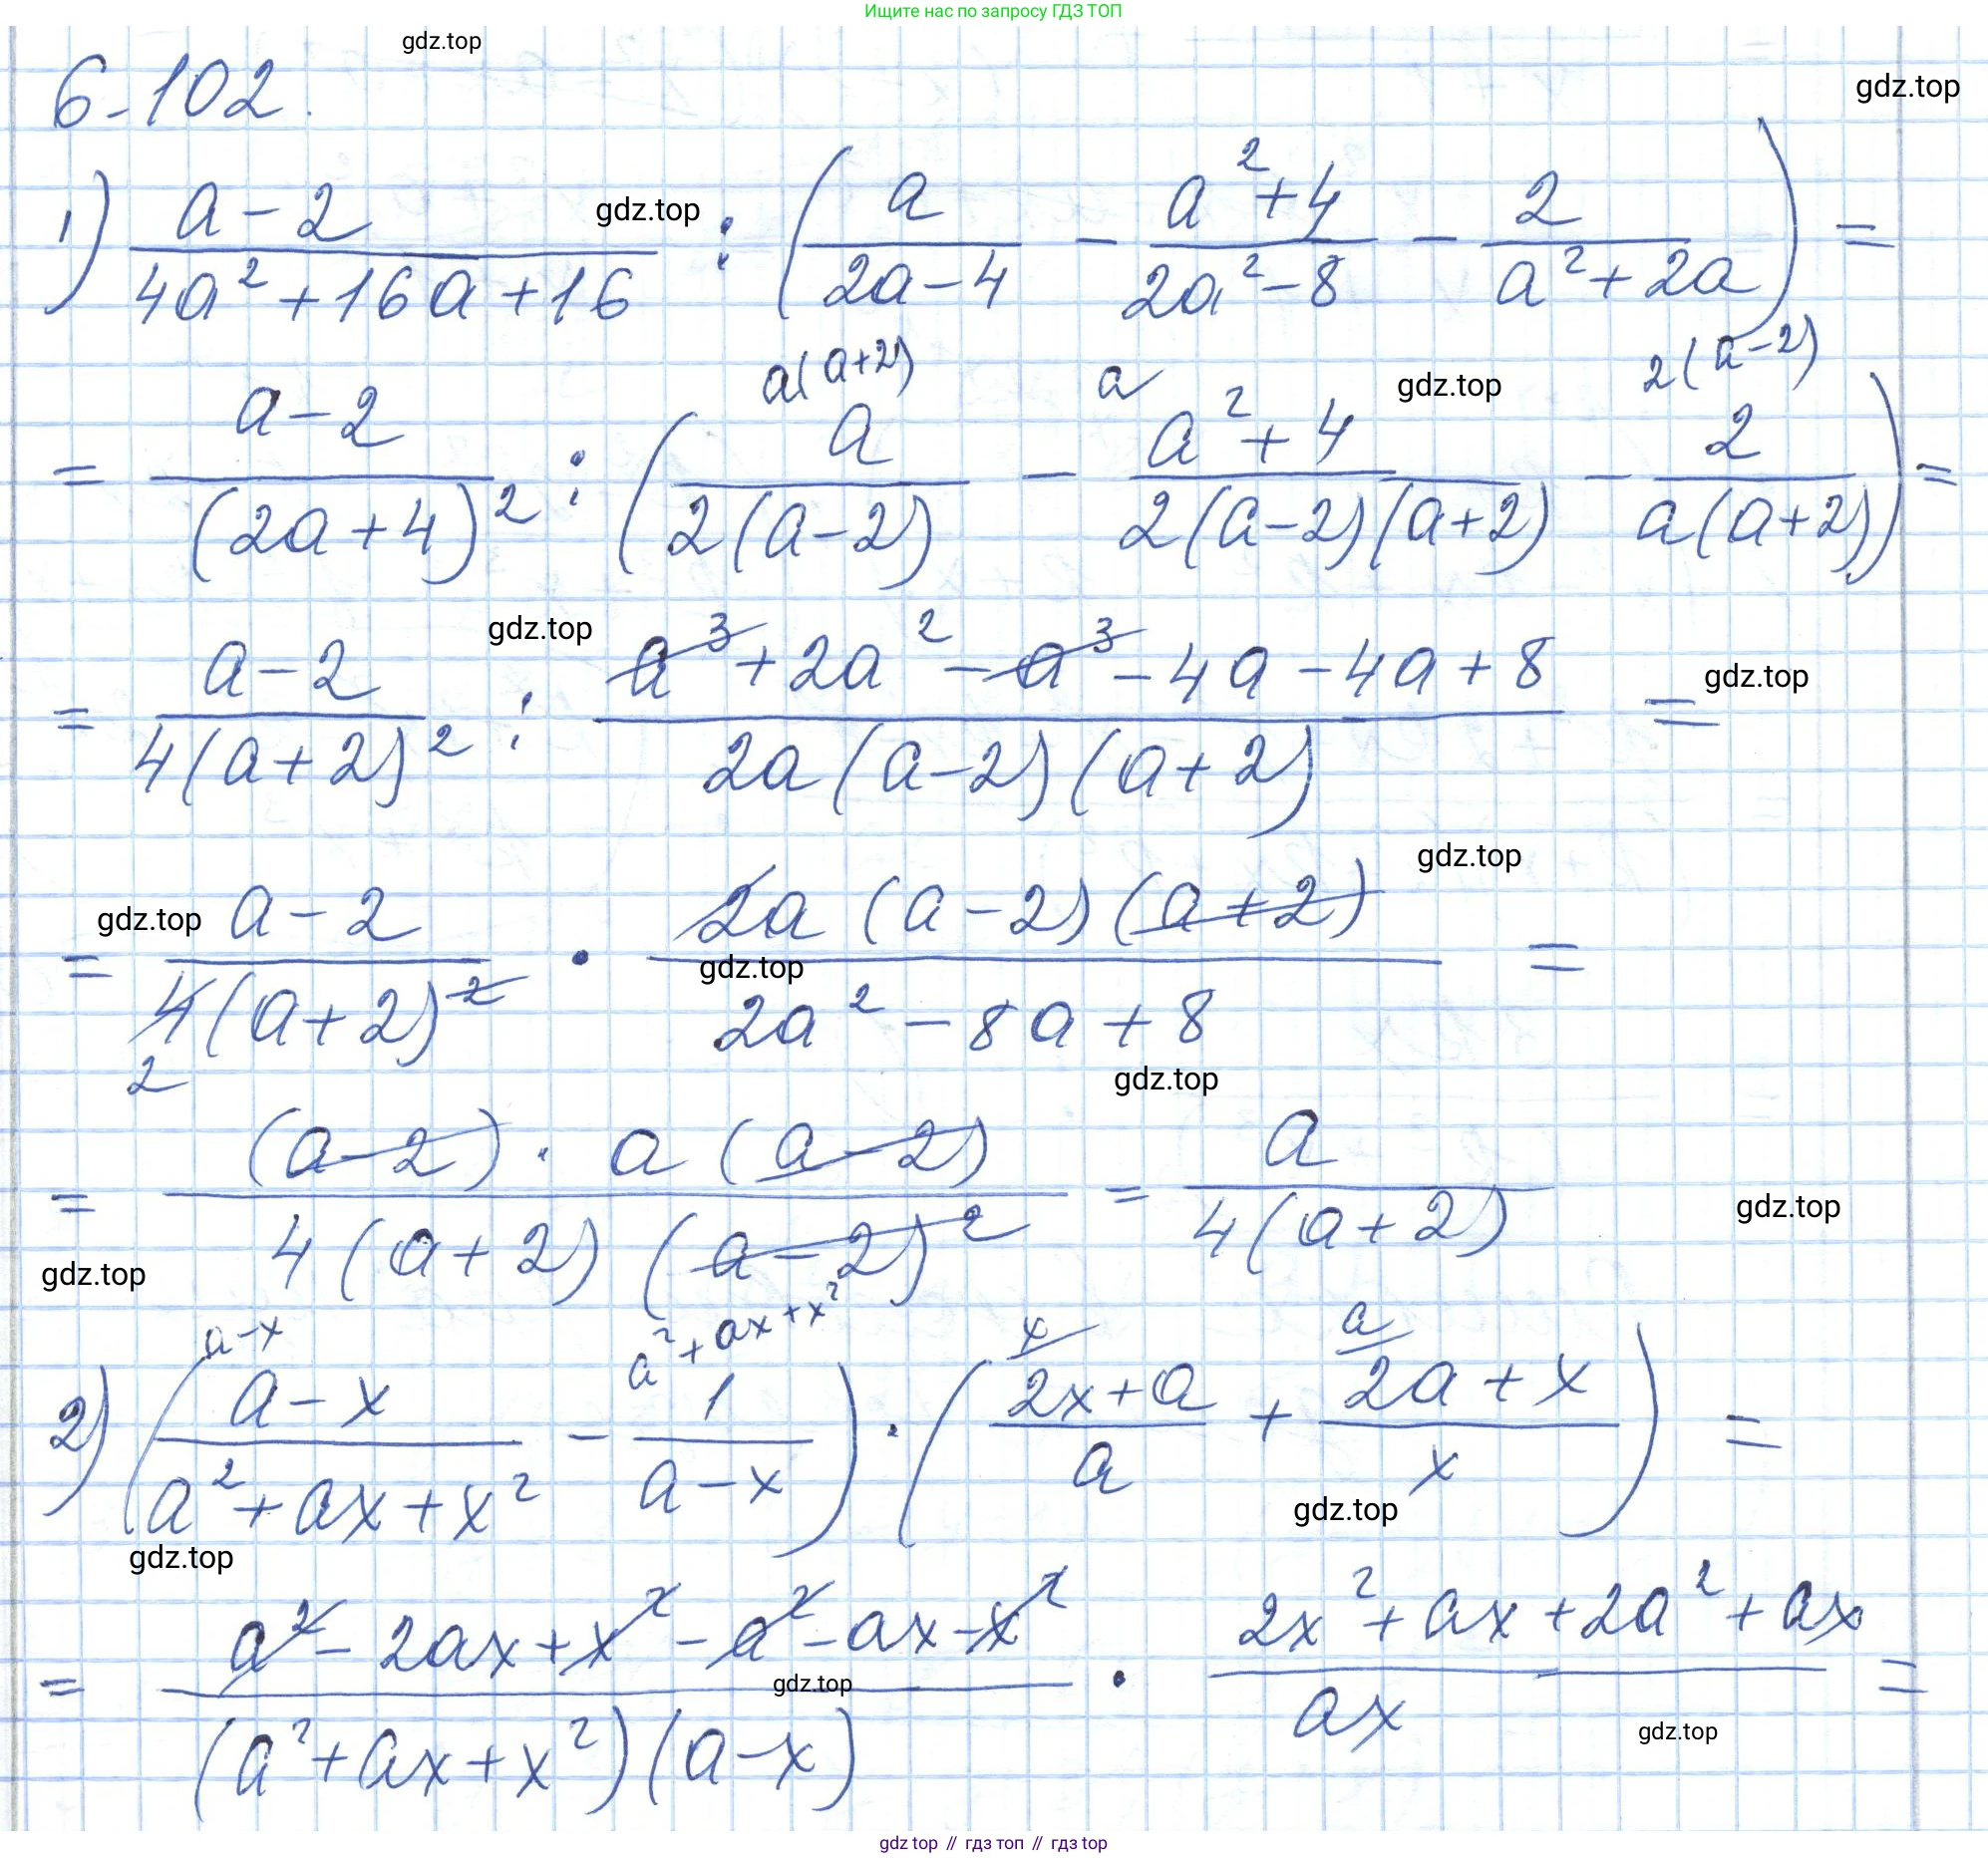 Ищите нас по запросу ГДЗ ТОП
gdz.top
6-102.
gdz.top
1) (a-2)/(4a²+16a+16) gdz.top : (a/(2a-4) - (a²+4)/(2a²-8) - 2/(a²+2a)) =
a(a+2) a gdz.top 2(a-2)
= (a-2)/(2a+4)² : (a/(2(a-2)) - (a²+4)/(2(a-2)(a+2)) - 2/(a(a+2))) =
gdz.top
= (a-2)/(4(a+2)²) : (a³+2a²-a³-4a-4a+8)/(2a(a-2)(a+2)) = gdz.top
gdz.top
gdz.top
= (a-2)/(4(a+2)²) · (2a(a-2)(a+2))/(2a²-8a+8) =
gdz.top
2
gdz.top
= ((a-2)·a(a-2))/(4(a+2)(a-2)²) = a/(4(a+2))
gdz.top
gdz.top
a-x a²+ax+x² x a
2) ((a-x)/(a²+ax+x²) - 1/(a-x)) · ((2x+a)/a + (2a+x)/x) =
gdz.top
gdz.top
= (a²-2ax+x²-a²-ax-x²)/((a²+ax+x²)(a-x)) · (2x²+ax+2a²+ax)/(ax) =
gdz.top
gdz.top
gdz top // гдз топ // gdz top